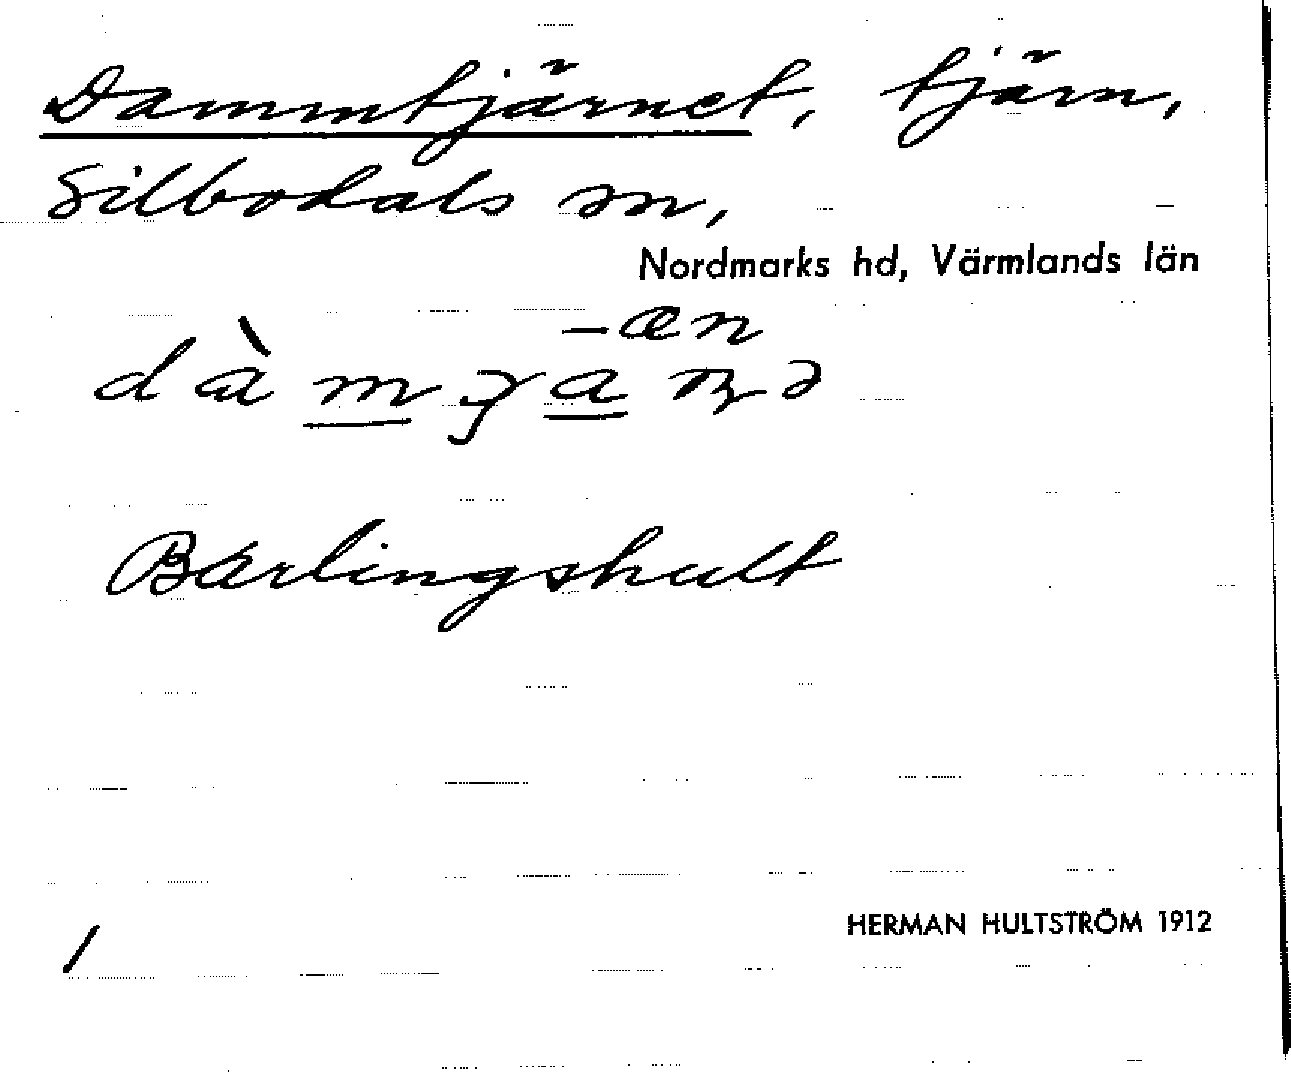 Dammtjärnet, tjärn,
Silbodals sn,
Nordmarks hd, Värmlands län
-æn
Bärlingshult
HERMAN HULTSTRÖM 1912
1